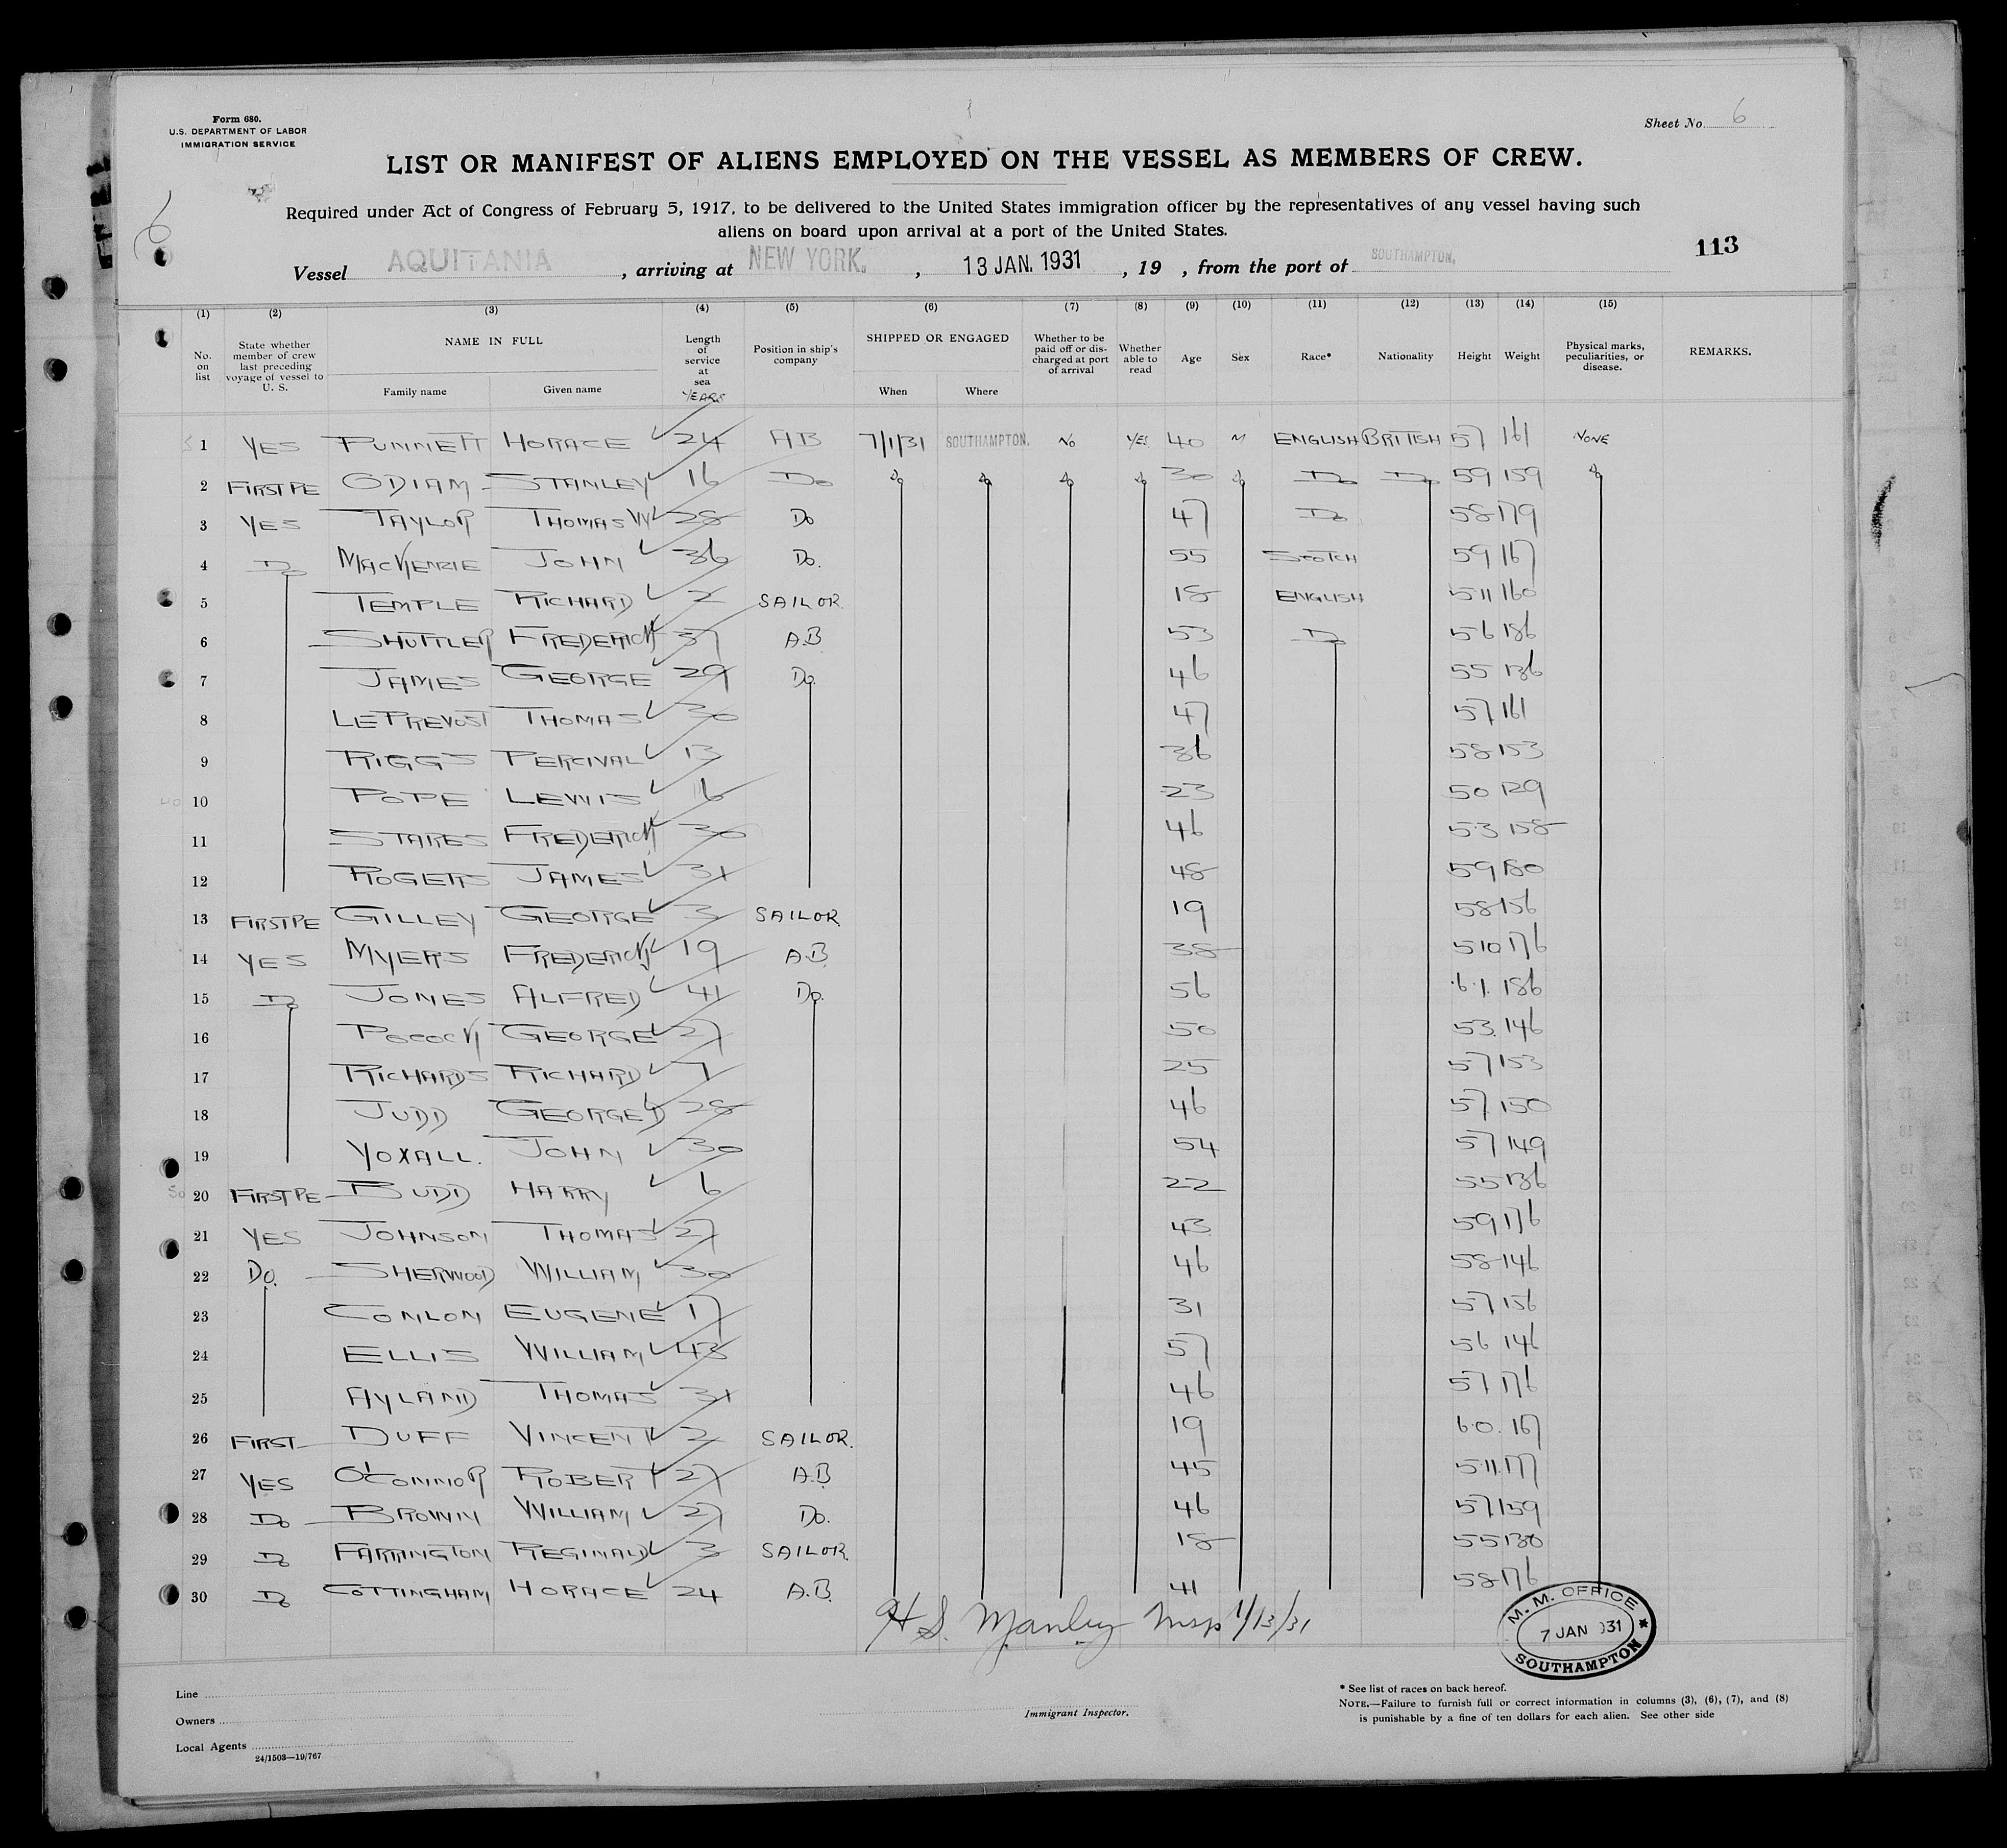 Form 680.
U.S. DEPARTMENT OF LABOR
IMMIGRATION SERVICE
Sheet No. 6
LIST OR MANIFEST OF ALIENS EMPLOYED ON THE VESSEL AS MEMBERS OF CREW.
Required under Act of Congress of February 5, 1917, to be delivered to the United States immigration officer by the representatives of any vessel having such
aliens on board upon arrival at a port of the United States.
6
113
Vessel AQUITANIA, arriving at NEW YORK., 13 JAN. 1931, 19 , from the port of SOUTHAMPTON.
(1) (2) (3) (4) (5) (6) (7) (8) (9) (10) (11) (12) (13) (14) (15)
No. on list State whether member of crew last preceding voyage of vessel to U. S. NAME IN FULL Family name Given name Length of service at sea YEARS Position in ship's company SHIPPED OR ENGAGED When Where Whether to be paid off or discharged at port of arrival Whether able to read Age Sex Race* Nationality Height Weight Physical marks, peculiarities, or disease. REMARKS.
1 YES PUNNETT HORACE 24 AB 7/1/31 SOUTHAMPTON. NO YES 40 M ENGLISH BRITISH 57 161 NONE
2 FIRST PE ODIAM STANLEY 16 Do Do Do Do Do 30 Do Do Do 59 159 Do
3 YES TAYLOR THOMAS W 28 Do 47 Do 58 179
4 Do MACKENZIE JOHN 36 Do. 55 SCOTCH 59 167
5 TEMPLE RICHARD 2 SAILOR. 18 ENGLISH 5 11 160
6 SHUTTLER FREDERICK 37 A.B 53 Do 56 186
7 JAMES GEORGE 29 Do. 46 55 136
8 LE PREVOST THOMAS 30 47 57 161
9 RIGGS PERCIVAL 13 36 58 153
10 POPE LEWIS 6 23 50 129
11 STARES FREDERICK 30 46 5.3 158
12 ROGERS JAMES 31 48 59 180
13 FIRST PE GILLEY GEORGE 3 SAILOR 19 58 156
14 YES MYERS FREDERICK 19 A.B 38 510 176
15 Do JONES ALFRED 41 Do. 56 6.1. 186
16 POCOCK GEORGE 27 50 53. 146
17 RICHARDS RICHARD 7 25 57 153
18 JUDD GEORGE D 28 46 57 150
19 YOXALL. JOHN 30 54 57 149
20 FIRST PE BUDD HARRY 6 22 55 136
21 YES JOHNSON THOMAS 27 43 59 176
22 Do. SHERWOOD WILLIAM 30 46 58 146
23 CONLON EUGENE 17 31 57 156
24 ELLIS WILLIAM 43 57 56 146
25 HYLAND THOMAS 31 46 57 176
26 FIRST DUFF VINCENT 2 SAILOR. 19 6.0. 167
27 YES O'CONNOR ROBERT 27 A.B 45 5.11. 177
28 Do BROWN WILLIAM 27 Do. 46 57 159
29 Do FARRINGTON REGINALD 3 SAILOR. 18 55 130
30 Do COTTINGHAM HORACE 24 A.B. 41 58 176
H S. Manley Insp 1/13/31
M. M. OFFICE
7 JAN 1931
SOUTHAMPTON
Line
Owners
Local Agents
24/1503—19/767
Immigrant Inspector.
* See list of races on back hereof.
NOTE.—Failure to furnish full or correct information in columns (3), (6), (7), and (8)
is punishable by a fine of ten dollars for each alien. See other side